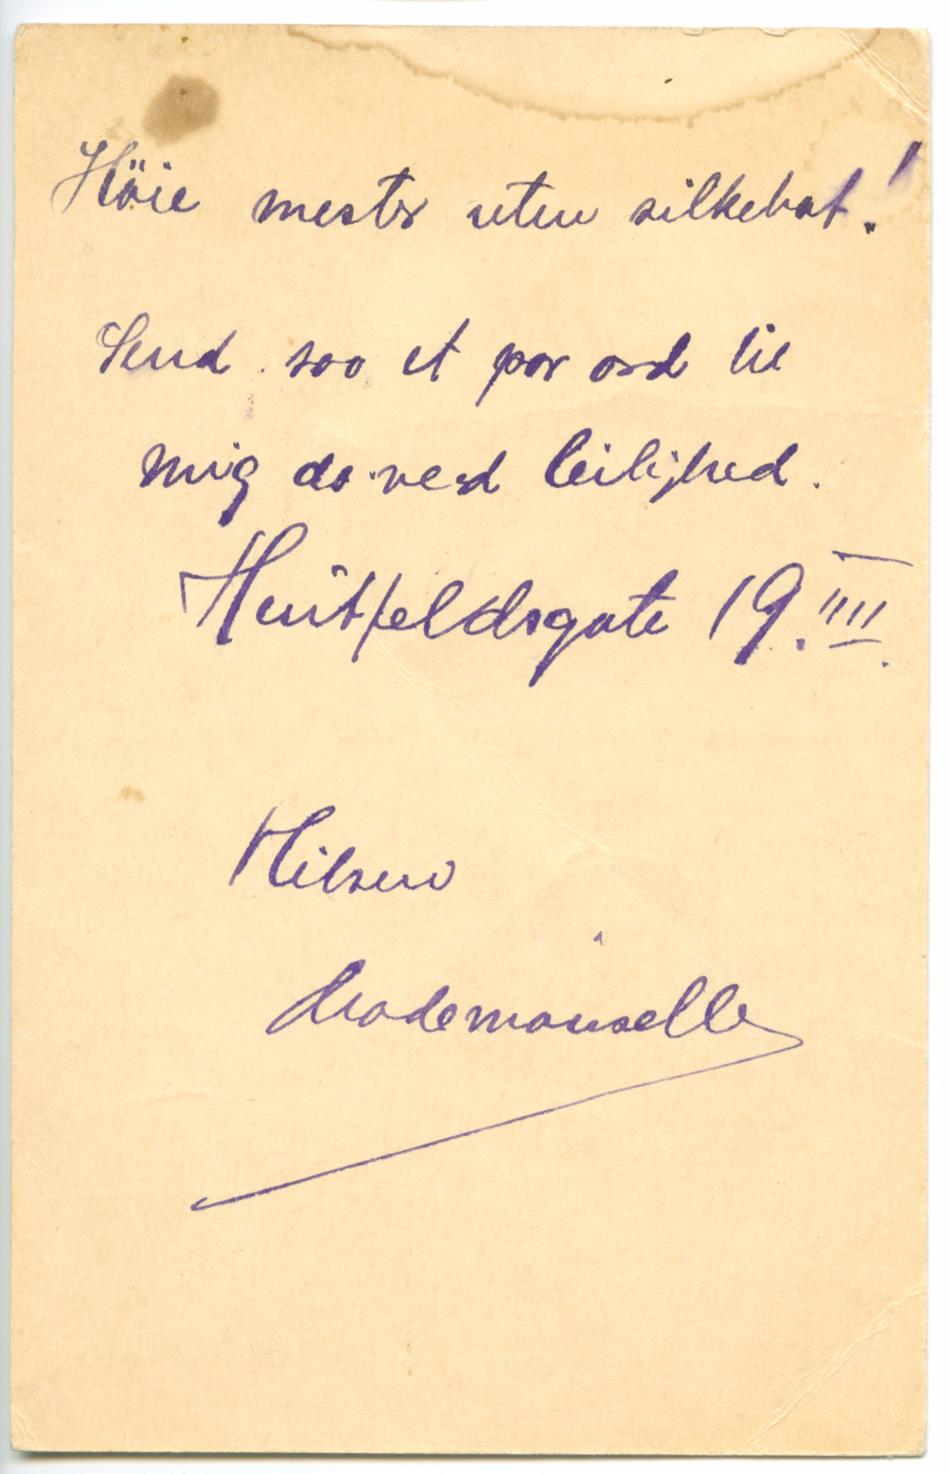 Höie mester uten silkehat!
Send saa et par ord til
mig da ved leilighed.
Huitfeldsgate 19. IIII.
Hilsen
Mademouselle